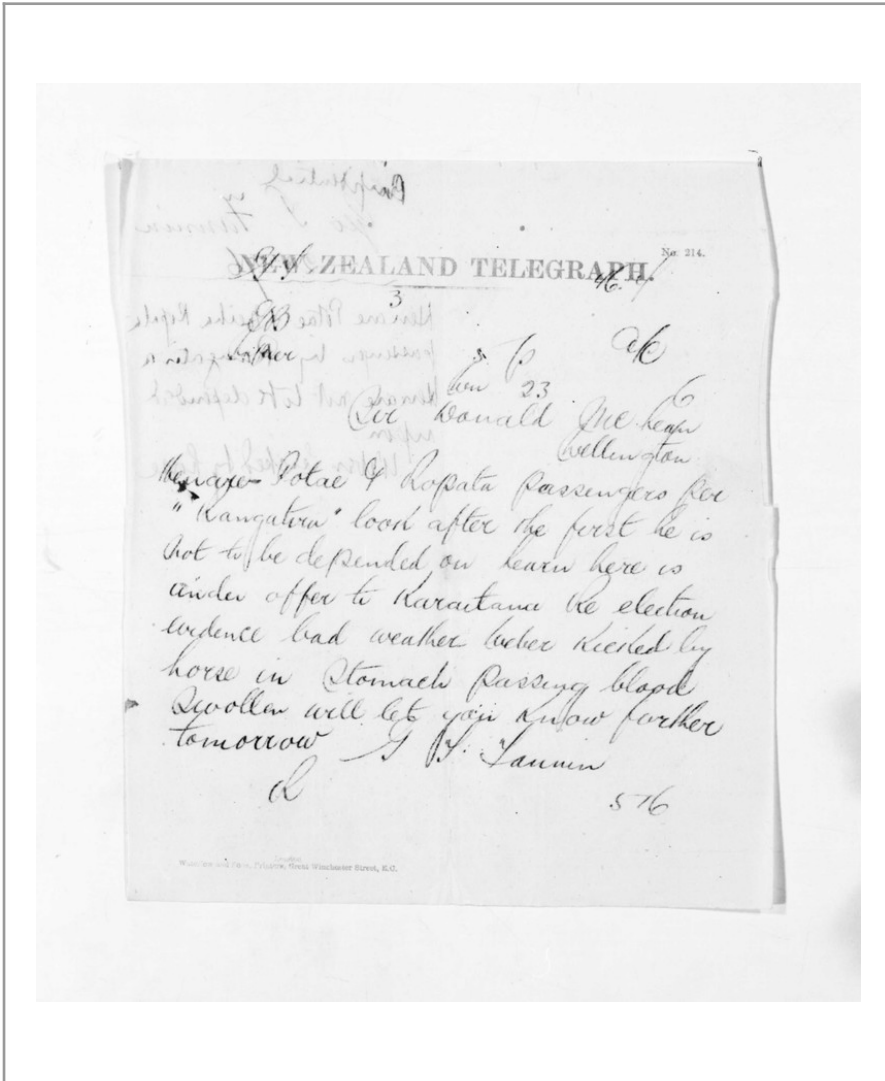 No. 214.
NEW ZEALAND TELEGRAPH.
3
23
Sir Donald McLean
Wellington
Henare Potae & Ropata passengers per
"Rangatira" look after the first he is
not to be depended on learn here is
under offer to Karaitana the election
evidence bad weather Weber Kicked by
horse in Stomach passing blood
Swollen will let you know further
tomorrow G F. Fannin
576
Printers, Great Winchester Street, E.C.